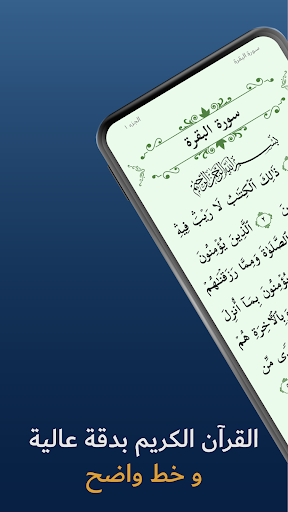 سورة البقرة
الجزء ١
سورة البقرة
بِسْمِ اللَّهِ الرَّحْمَنِ الرَّحِيمِ
ذَٰلِكَ الْكِتَٰبُ لَا رَيْبَ فِيهِ
٢ الَّذِينَ يُؤْمِنُونَ
الصَّلَوٰةَ وَمِمَّا رَزَقْنَٰهُمْ
يُؤْمِنُونَ بِمَآ أُنزِلَ
وَبِالْآخِرَةِ هُمْ
مِّن
القرآن الكريم بدقة عالية
و خط واضح